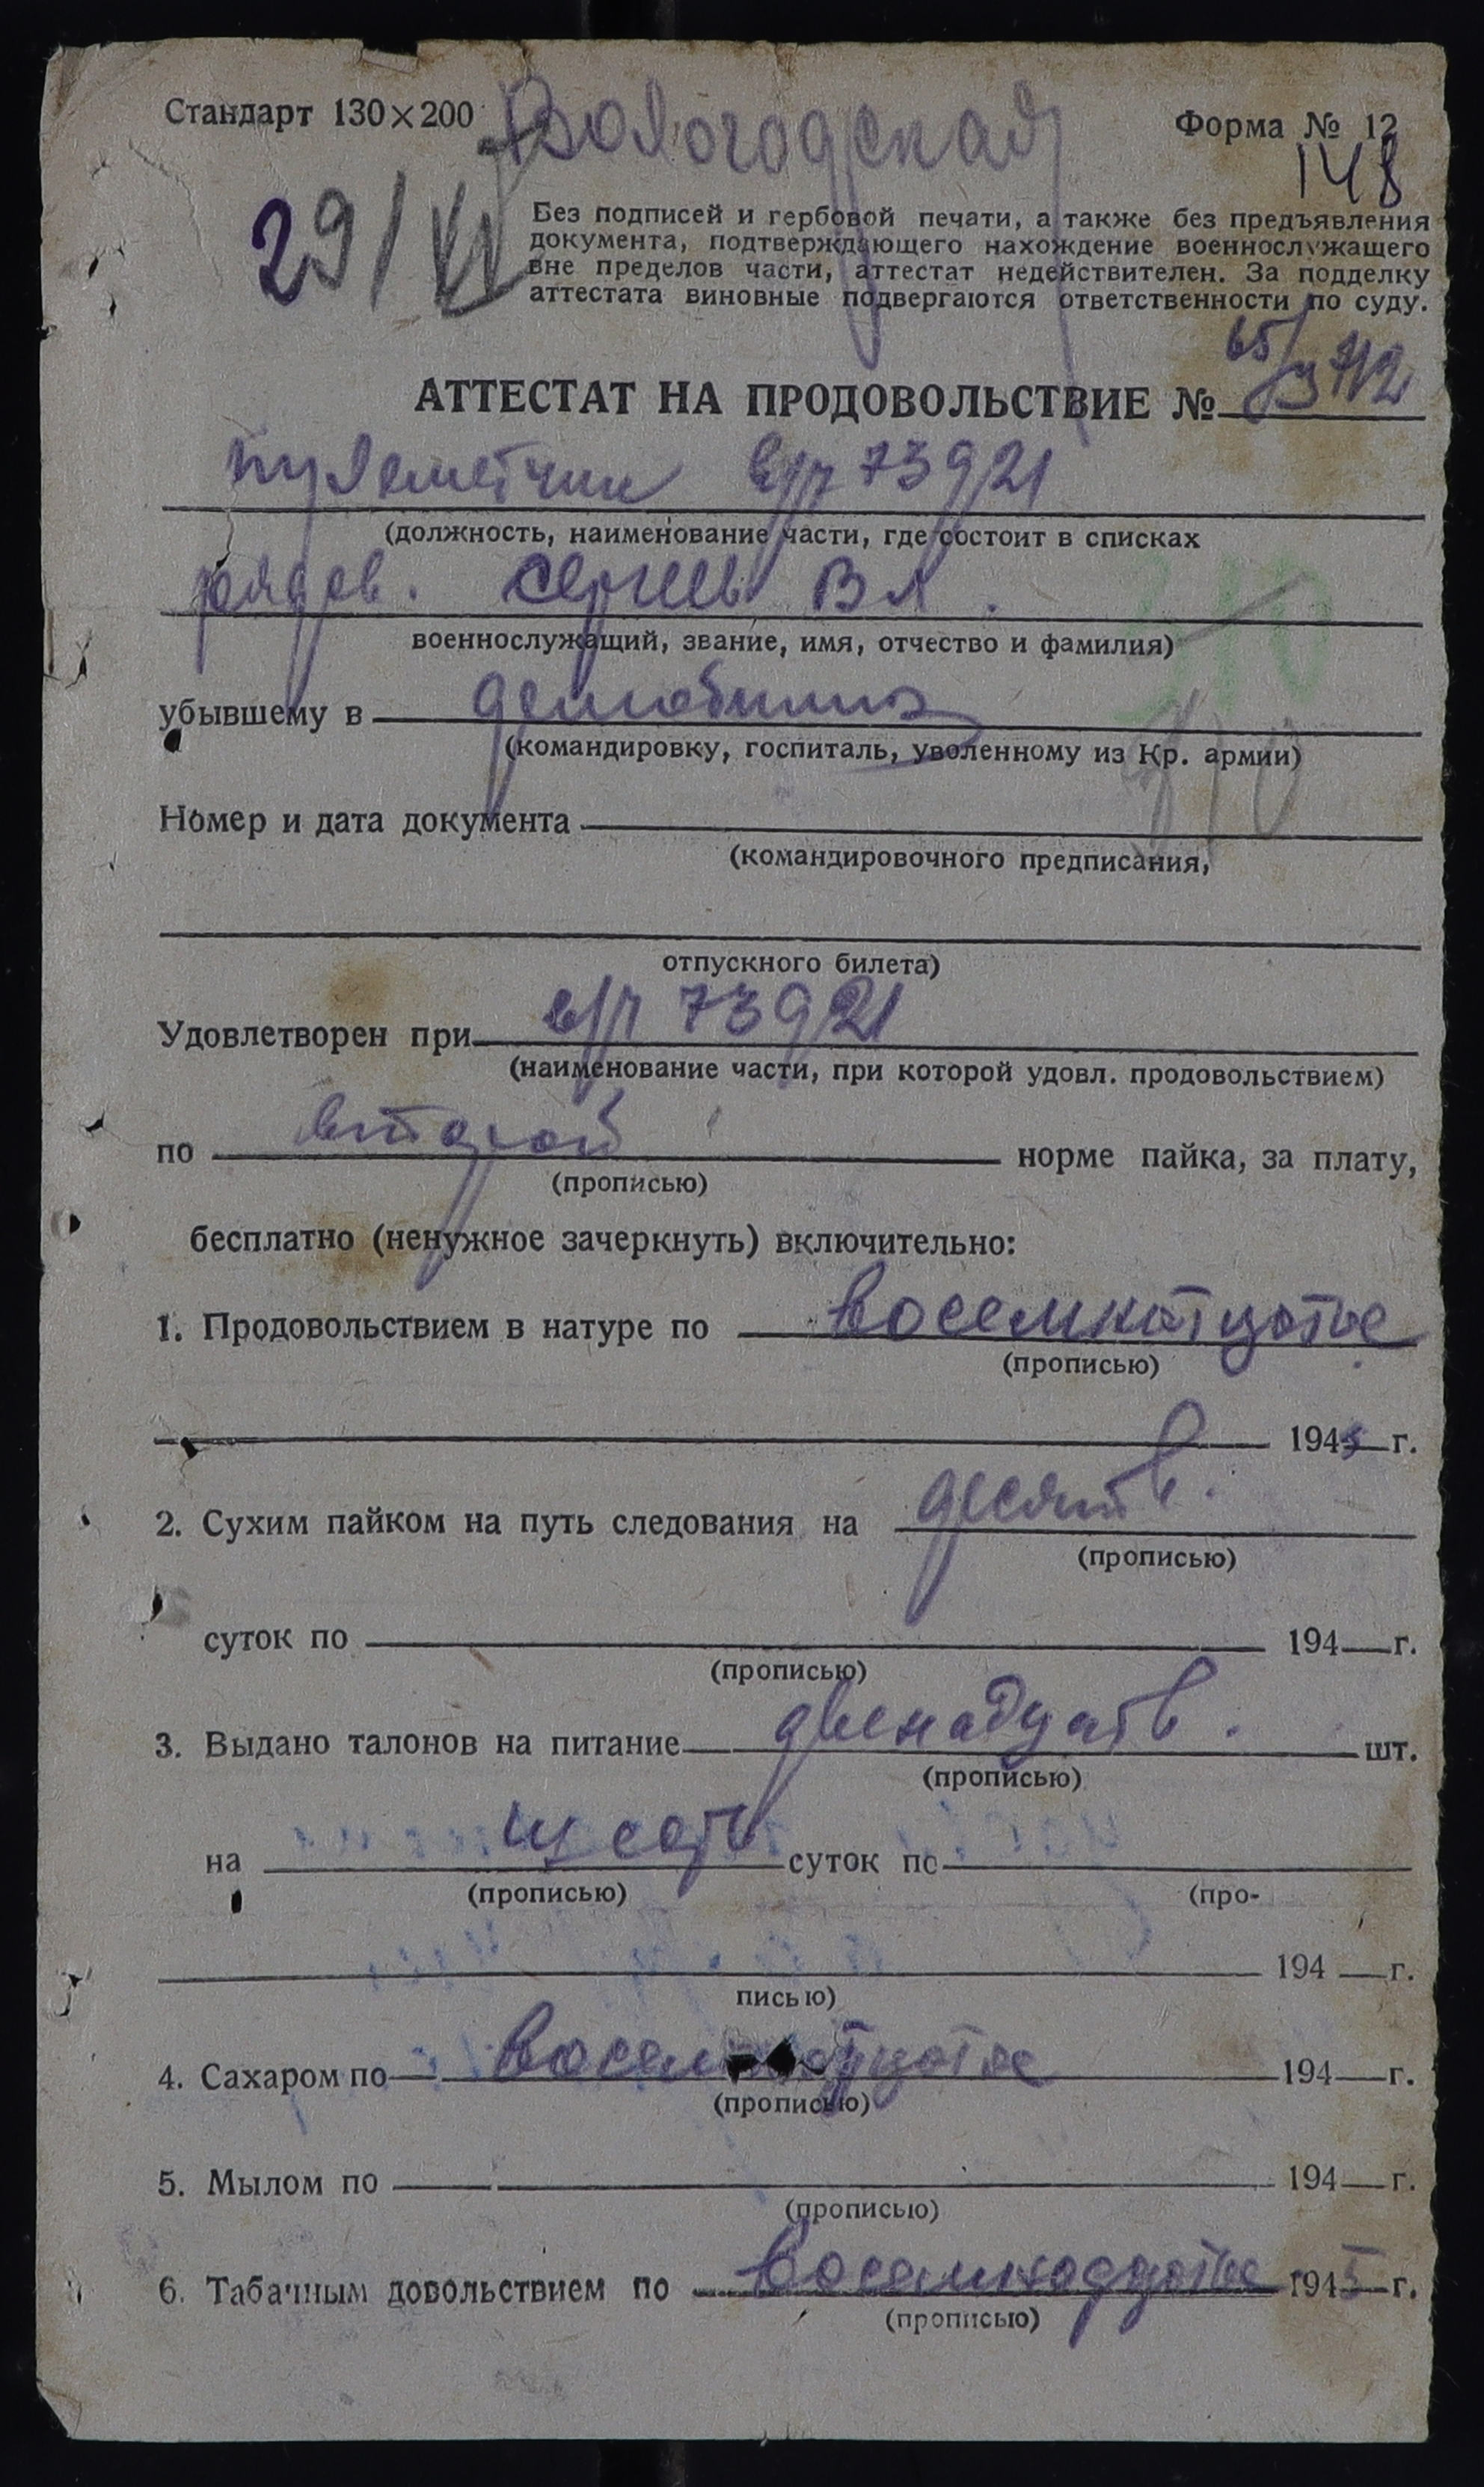 Стандарт 130×200
Вологодская
Форма № 12
148
29/VI
Без подписей и гербовой печати, а также без предъявления
документа, подтверждающего нахождение военнослужащего
вне пределов части, аттестат недействителен. За подделку
аттестата виновные подвергаются ответственности по суду.
АТТЕСТАТ НА ПРОДОВОЛЬСТВИЕ №
пулеметчик в/ч 73921
(должность, наименование части, где состоит в списках
рядов. Сергеев В А.
военнослужащий, звание, имя, отчество и фамилия)
убывшему в
(командировку, госпиталь, уволенному из Кр. армии)
Номер и дата документа
(командировочного предписания,
отпускного билета)
Удовлетворен при в/ч 73921
(наименование части, при которой удовл. продовольствием)
по второй норме пайка, за плату,
(прописью)
бесплатно (ненужное зачеркнуть) включительно:
1. Продовольствием в натуре по восемнатцатое
(прописью)
1945 г.
2. Сухим пайком на путь следования на десять.
(прописью)
суток по 194 г.
(прописью)
3. Выдано талонов на питание двенадцать. шт.
(прописью)
на шесть суток по
(прописью) (про-
194 г.
писью)
4. Сахаром по восемнатцатое 194 г.
(прописью)
5. Мылом по 194 г.
(прописью)
6. Табачным довольствием по восемнадцатое 1945 г.
(прописью)